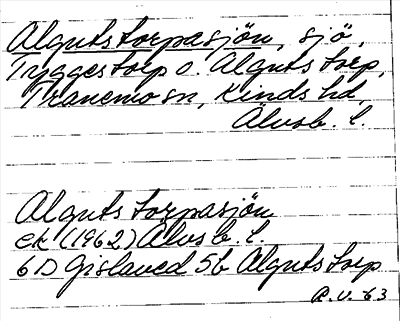 Algutstorpasjön, sjö,
Tryggestorp o. Algutstorp,
Tranemo sn, Kinds hd,
Älvsb. l.
Algutstorpasjön
ek (1962) Älvsb. l.
6D Gislaved 5b Algutstorp
R.V. 63